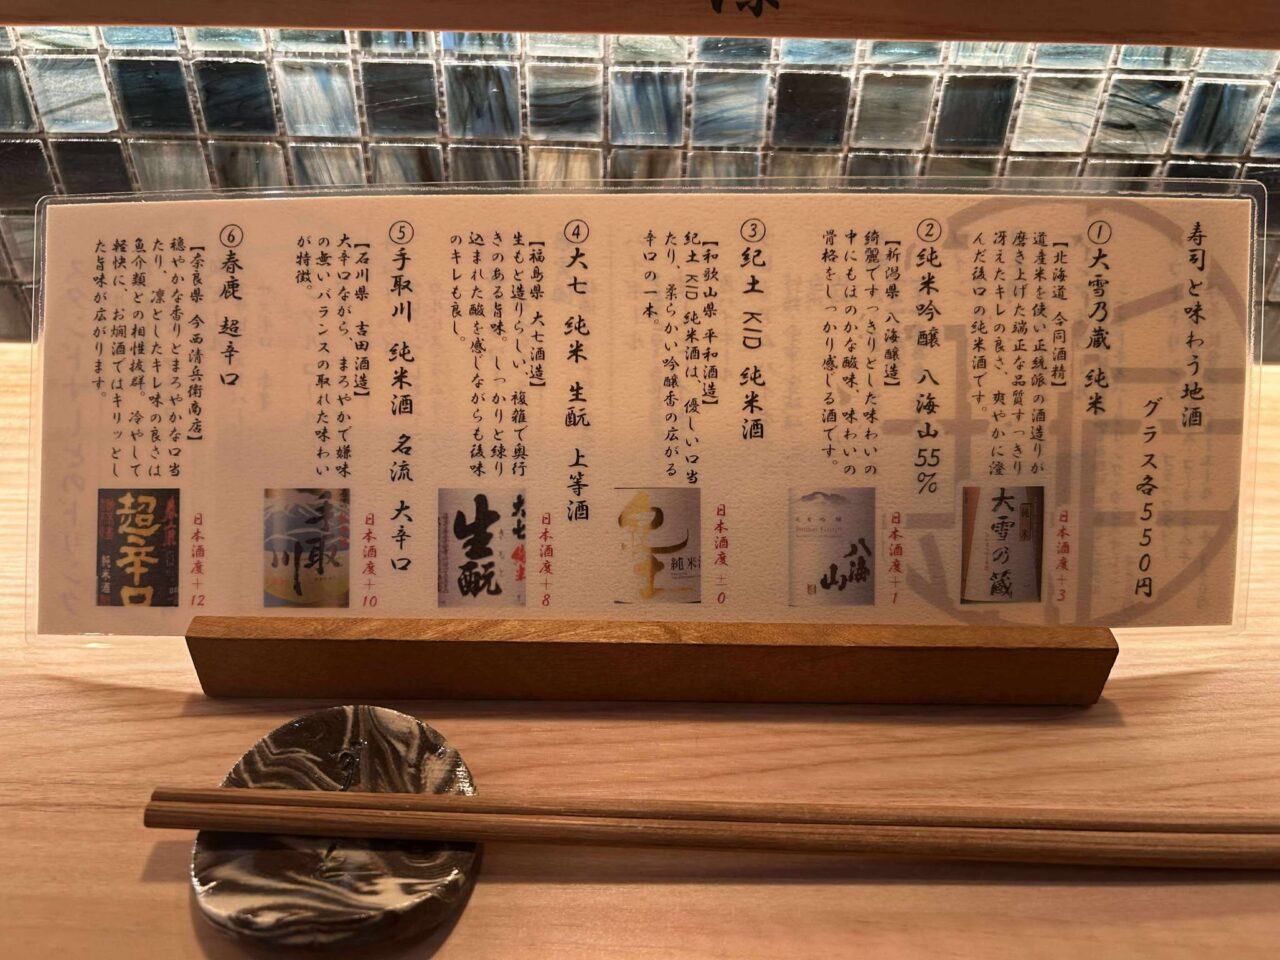 寿司と味わう地酒
グラス各550円
①大雪乃蔵 純米
【北海道 合同酒精】
道産米を使い正統派の酒造りが
磨き上げた端正な品質すっきり
冴えたキレの良さ、爽やかに澄
んだ後口の純米酒です。
日本酒度+3
純米
大雪乃蔵
②純米吟醸 八海山55%
【新潟県 八海醸造】
綺麗ですっきりとした味わいの
中にもほのかな酸味、味わいの
骨格をしっかり感じる酒です。
日本酒度+1
八海山
③紀土 KID 純米酒
【和歌山県 平和酒造】
紀土 KID 純米酒は、優しい口当
たり、柔らかい吟醸香の広がる
辛口の一本。
日本酒度 ±0
紀土
純米酒
④大七 純米 生酛 上等酒
【福島県 大七酒造】
生もと造りらしい、複雑で奥行
きのある旨味。しっかりと練り
込まれた酸を感じながらも後味
のキレも良し。
日本酒度+8
大七
生酛
⑤手取川 純米酒 名流 大辛口
【石川県 吉田酒造】
大辛口ながら、まろやかで嫌味
の無いバランスの取れた味わい
が特徴。
日本酒度+10
手取川
⑥春鹿 超辛口
【奈良県 今西清兵衛商店】
穏やかな香りとまろやかな口当
たり、凛としたキレ味の良さは
魚介類との相性抜群。冷やして
軽快に、お燗酒ではキリッとし
た旨味が広がります。
日本酒度+12
超辛口
純米酒